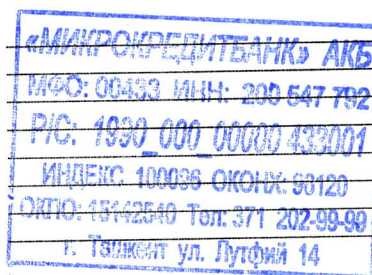 «МИКРОКРЕДИТБАНК» АКБ
МФО: 00433 ИНН: 200 547 792
Р/С: 1990_000_00000 433001
ИНДЕКС 100096 ОКОНХ: 96120
ОКПО: 15142540 Тел: 371 202-99-99
г. Ташкент ул. Лутфий 14